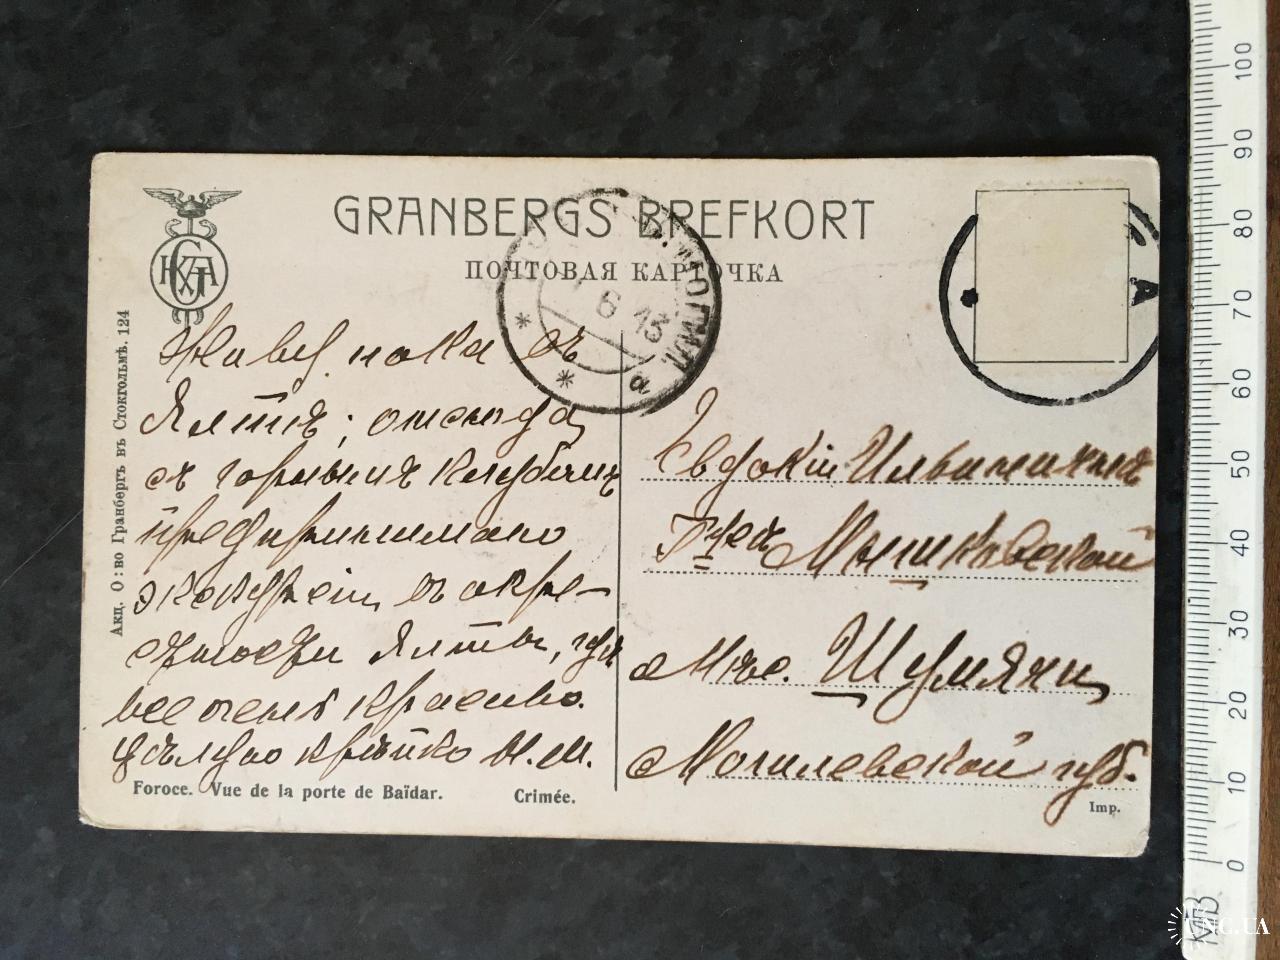 GRANBERGS BREFKORT
ПОЧТОВАЯ КАРТОЧКА
МОГИЛ.
6 13
а
А
Акц. О:во Гранбергъ въ Стокгольмѣ. 124
Живу пока въ
Ялтѣ; отсюда
съ горнымъ клубомъ
предпринимаю
экскурсіи въ окре-
стности Ялты, гдѣ
все очень красиво.
Цѣлую крѣпко Н.М.
Евдокіи Ильинишнѣ
Мышковской
Мѣс. Шумячи
Могилевской губ.
Foroce. Vue de la porte de Baïdar. Crimée.
Imp.
0 10 20 30 40 50 60 70 80 90 100
UNC.UA